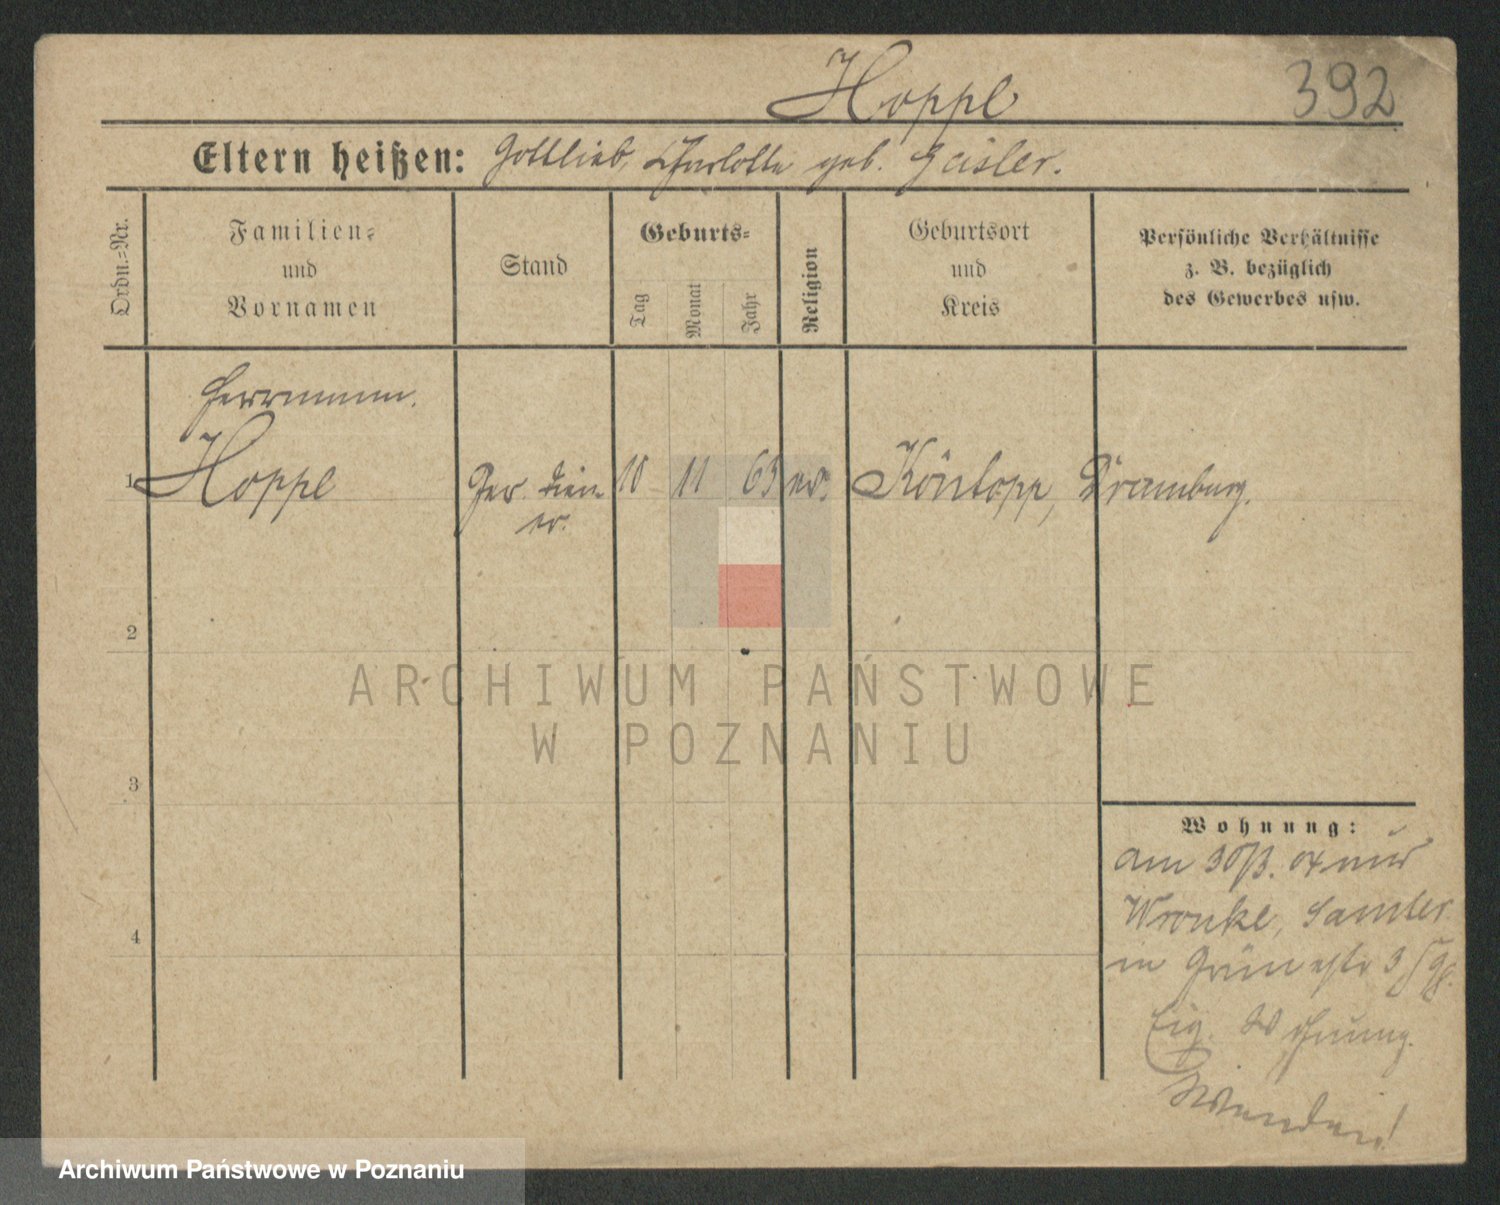 Hoppe
392
Eltern heißen: Gottlieb, Charlotte geb. Geisler.
Ordn.-Nr.
Familien-
und
Vornamen
Stand
Geburts-
Tag
Monat
Jahr
Religion
Geburtsort
und
Kreis
Persönliche Verhältnisse
z. B. bezüglich
des Gewerbes usw.
Herrmann.
1 Hoppe Ger. Dien 10 11 63 ev. Köntopp, Dramburg.
er.
2
3
4
Wohnung:
am 30/3. 04 aus
Wronke, Samter
in Grünestr 3
Eig. Wohnung.
Wenden!
ARCHIWUM PAŃSTWOWE
W POZNANIU
Archiwum Państwowe w Poznaniu